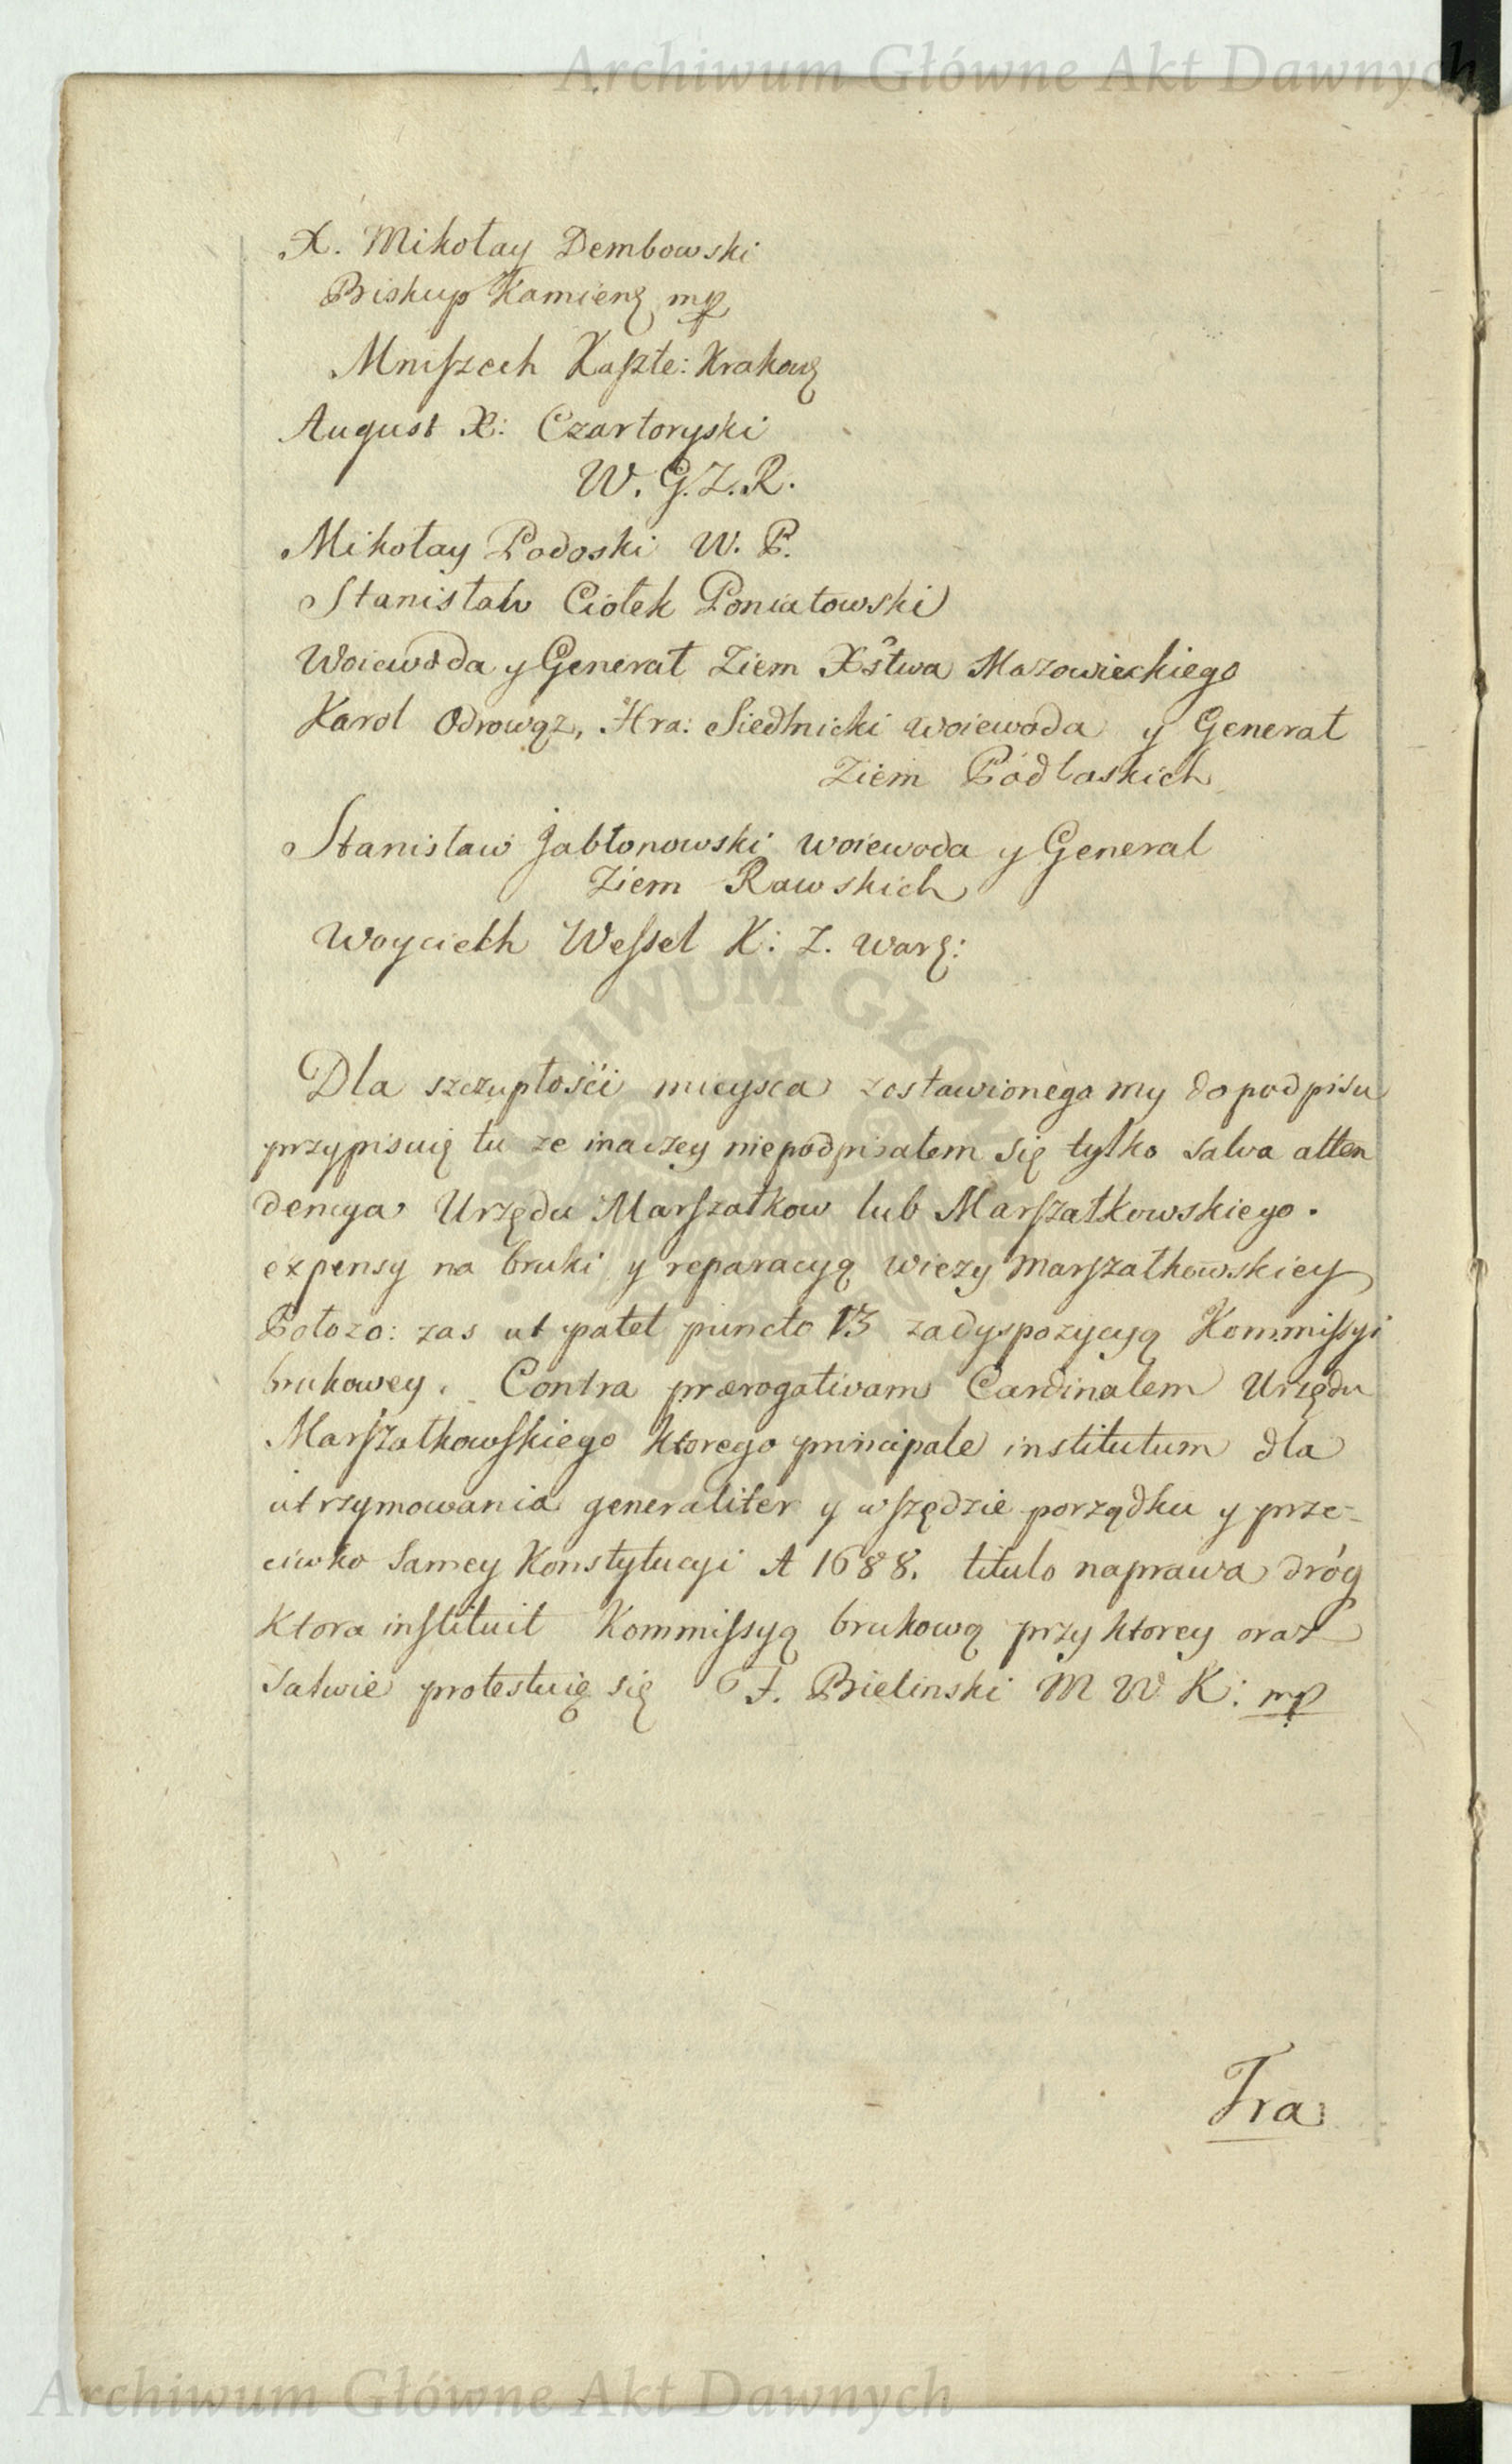 Archiwum Główne Akt Dawnych
X. Mikołay Dembowski
Biskup Kamień mp
Mniszech Kaszte: Krakow
August X: Czartoryski
W. G. Z. R.
Mikołay Podoski W. P.
Stanisław Ciołek Poniatowski
Woiewoda y Generał Ziem Xstwa Mazowieckiego
Karol Odrowąz, Hra: Siedlnicki woiewoda y Generał
Ziem Podlaskich
Stanisław Jabłonowski woiewoda y General
Ziem Rawskich
Woyciech Wessel K: Z. War:
Dla szczupłości mieysca zostawionego my do podpisu
przypisuię tu ze inaczey niepodpisałem się tylko salva atten
dencya Urzędu Marszałkow lub Marszałkowskiego.
expensy na bruki y reparacyą wiezy Marszałkowskiey
Połozo: zas ut patet puncto 13 zadyspozycyą Kommissyi
brukowey. Contra prærogativam Cardinalem Urzędu
Marszałkowskiego ktorego principale institutum dla
utrzymowania generaliter y wszędzie porządku y prze-
ciwko Samey Konstytucyi A 1688. titulo naprawa dróg
Ktora instituit Kommissyą brukową przy ktorey oraz
salwie protestuię się F. Bielinski M W K: mp
Tra
Archiwum Główne Akt Dawnych